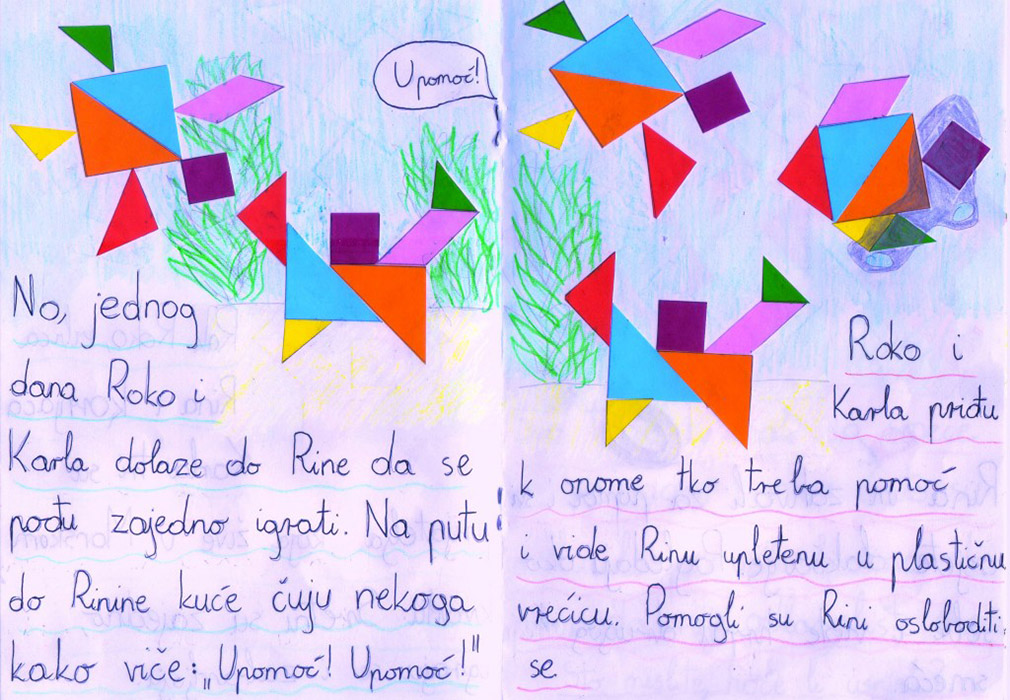 Upomoć!
No, jednog
dana Roko i
Karla dolaze do Rine da se
pođu zajedno igrati. Na putu
do Rinine kuće čuju nekoga
kako viče: „Upomoć! Upomoć!"
Roko i
Karla priđu
k onome tko treba pomoć
i vide Rinu upletenu u plastičnu
vrećicu. Pomogli su Rini osloboditi
se.